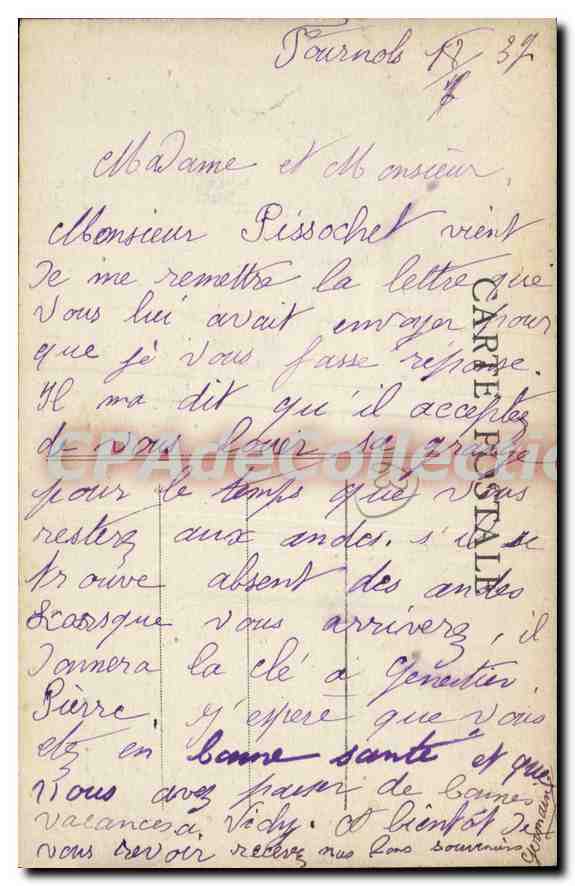 Tournols 12/7 37
Madame et Monsieur,
Monsieur Pissochet vient
de me remettre la lettre que
vous lui avait envoyer pour
que je vous fasse réponse.
Il ma dit qu'il acceptez
de vous louer sa grange
pour le temps que vous
resterez aux andes. s'il se
trouve absent des andes
Lorsque vous arriverez, il
donnera la clé a Genestier
Pierre. J'espere que vous
etz en bonne santé et que
vous avez passer de bonnes
vacances a Vichy. A bientôt de
vous revoir recevez nos bons souvenirs
Germaine
CARTE POSTALE
CPAdeCollection